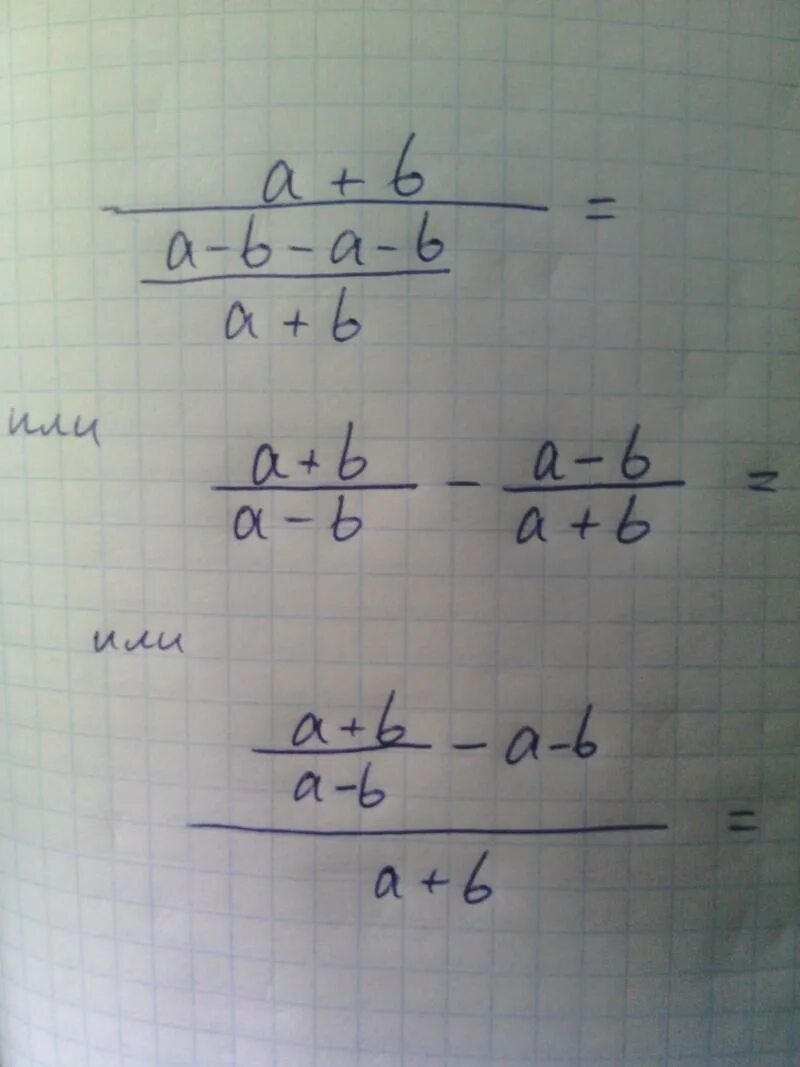 a + b
a - b - a - b =
a + b
или
a + b / a - b - a - b / a + b =
или
a + b / a - b - a - b
=
a + b